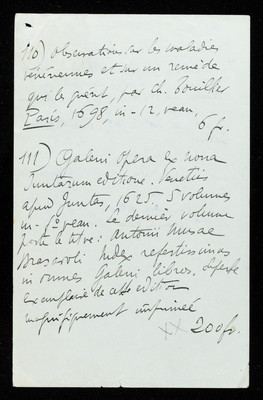 110) Observations sur les maladies
vénériennes et sur un remède
qui les guérit, par Ch.
Paris, 1698, in-12, veau,
6 fr.
111) Galeni opera ex nona
Juntarum editione. Venetiis
apud Juntas, 1625. 5 volumes
in-fº veau. Le dernier volume
porte le titre: Antonii Musae
Brasavoli Index refertissimus
in omnes Galeni libros. Superbe
exemplaire de edition
magnifiquement imprimée
XX 200 fr.